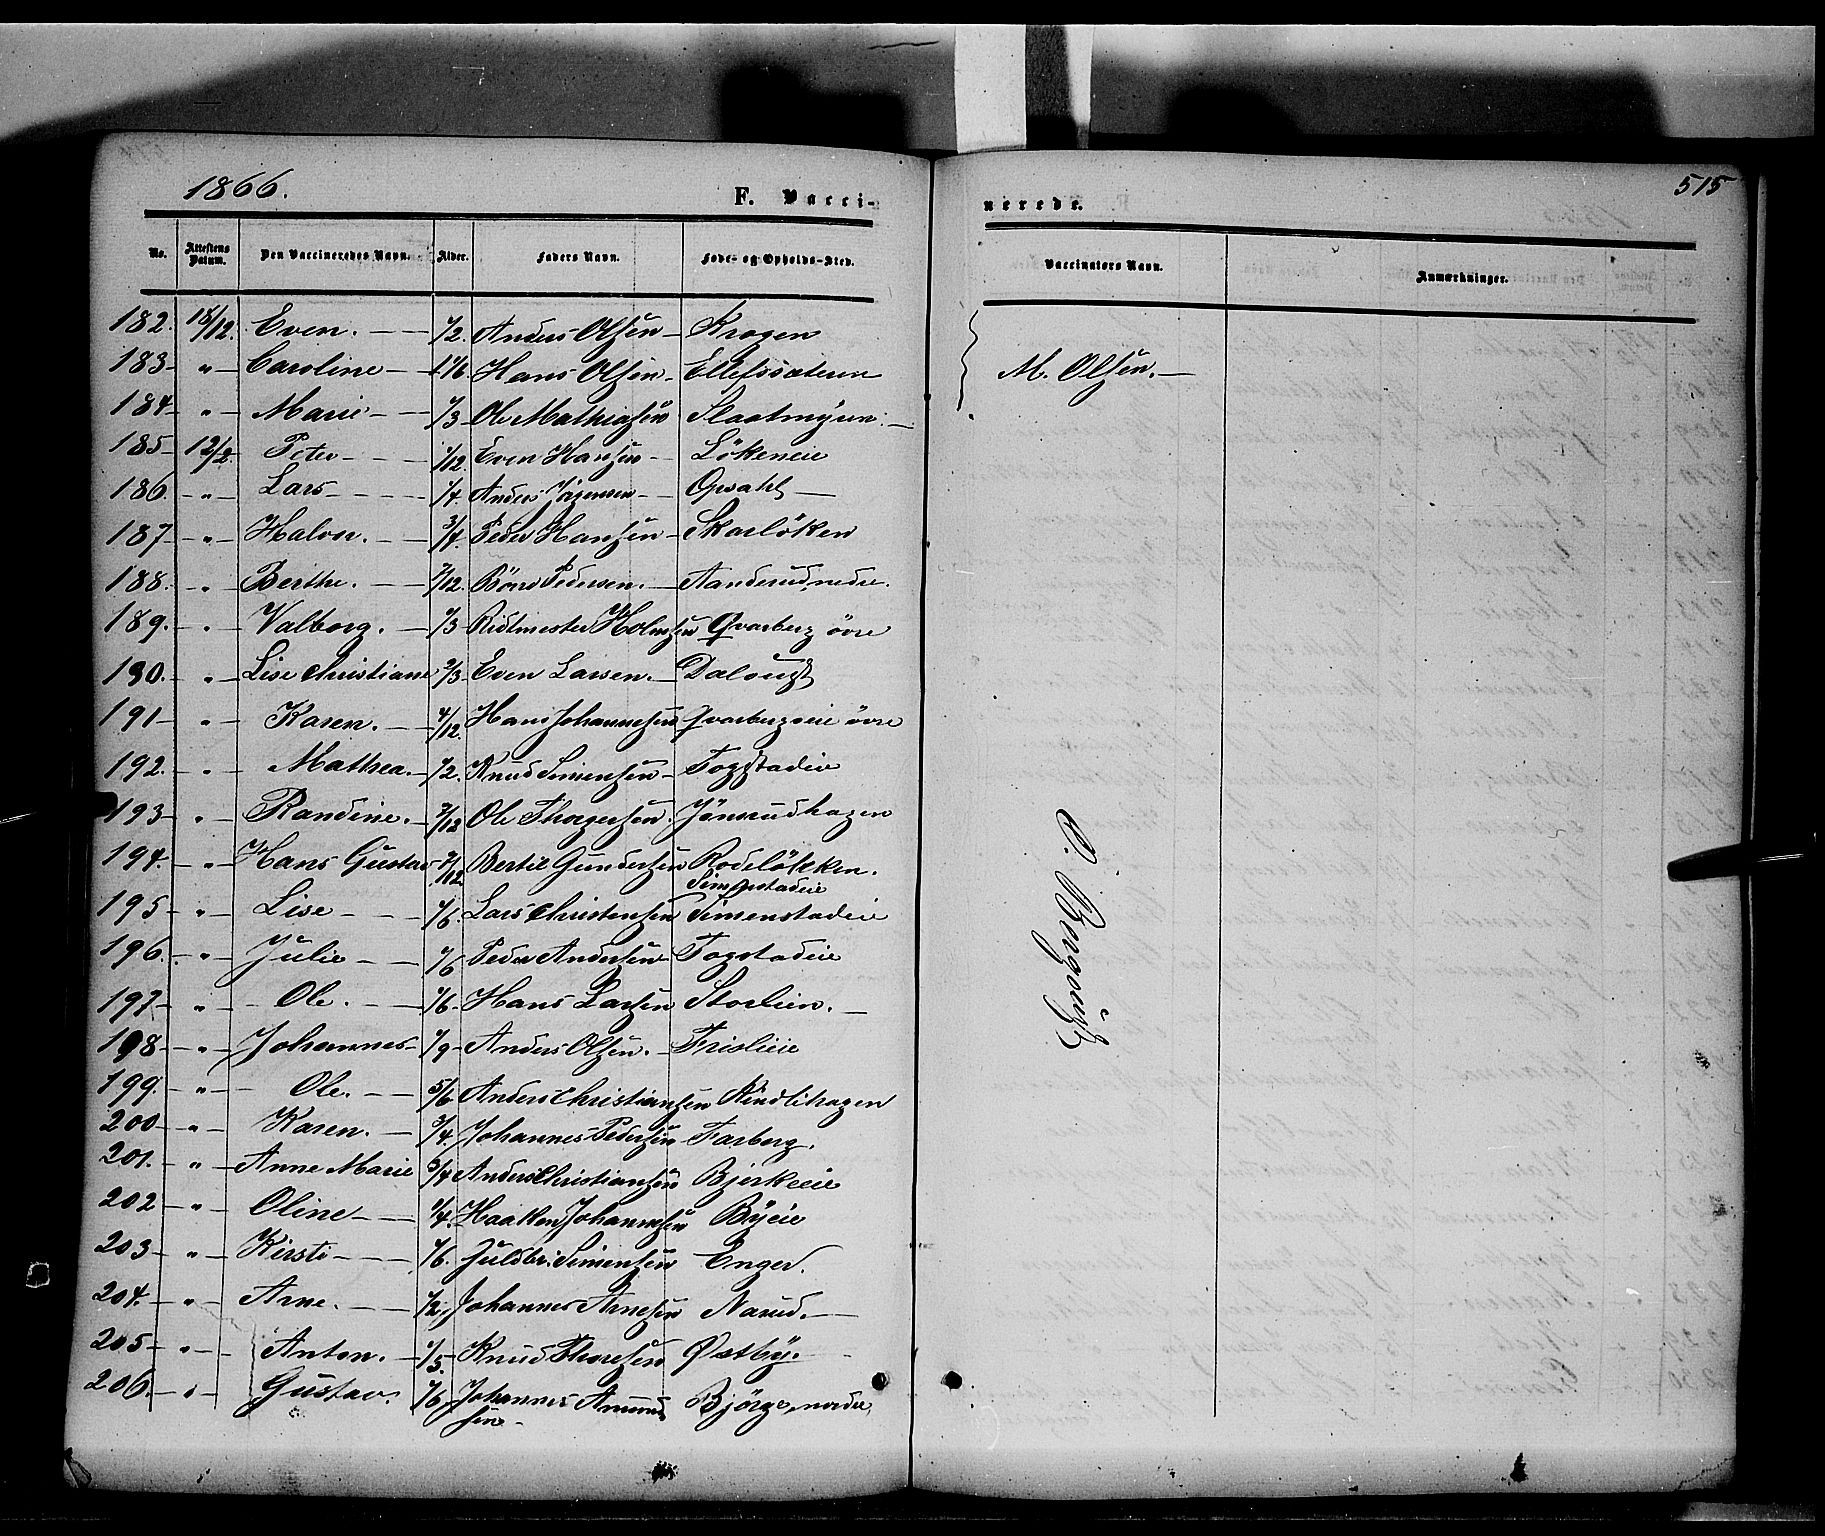 1866. F. Vacci- nerede. 515
No. Attestens Datum. Den Vaccineredes Navn. Alder. Faders Navn. Føde- og Opholds-Sted. Vaccinators Navn. Anmærkninger.
182. 18/12. Even. 1/2. Anders Olsen Krogen
183 " Caroline 1 1/6. Hans Olsen Ellefssæteren M. Olsen.
184 " Marie 1/3 Ole Mathiasen Slaatmyren.
185 12/2. Peter 1/12. Even Hansen Lökeneie
186. " Lars 1/4. Anders Jörgensen Opsahl
187 " Halvor. 3/4. Peder Hansen Skarlöken
188. " Berthe. 7/12. Böns Pedersen. Aanderud nedre.
189. " Valborg. 1/3 Ridtmester Holmsen Qvarberg övre
190. " Lise Christiane 2/3 Even Larsen. Dalougst
191 " Karen. 4/12. Hans Johannesen Qvarbergseie övre
192. " Mathea. 1/2. Knud Simensen Fogstadeie
193 " Randine. 7/12 Ole Thorgersen. Jönsrudhagen
194. " Hans Gustav 7/12 Bertil Gundersen Rodelökken. Simenstadeie
195 " Lise 1/6. Lars Christensen Simenstadeie
196. " Julie 1/6 Peder Andersen Fogstadeie
197 " Ole. 1/6 Hans Larsen Storlien.
198 " Johannes 1/9 Anders Olsen. Frisleie
199. " Ole. 5/6 Anders Christiansen Kindlihagen
200 " Karen. 3/4. Johannes Pedersen Farberg.
201. " Anne Marie 3/4 Anders Christiansen Bjerkeeie
202 " Oline 1/4. Haaken Johannesen Byeie
203 " Kirsti 1/6. Guldbr. Simensen Enger.
204. " Arne. 1/2, Johannes Arnesen Narud.
205 " Anton. 1/5. Knud Thoresen Østby.
206. " Gustav. 1/6, Johannes Amund Bjørge, nordre,
sen